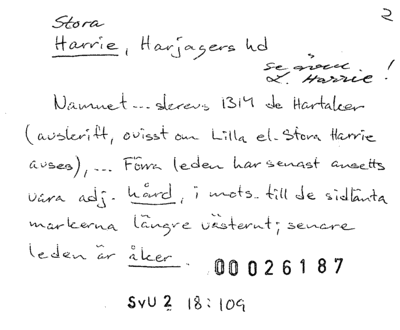 2
Stora
Harrie, Harjagers hd
se även
L. Harrie!
Namnet --- skrevs 1314 de Hartaker
(avskrift, ovisst om Lilla el. Stora Harrie
avses), --- Förra leden har senast ansetts
vara adj. hård, i mots. till de sidlänta
markerna längre västerut; senare
leden är åker.
00026187
SvU 2 18:109